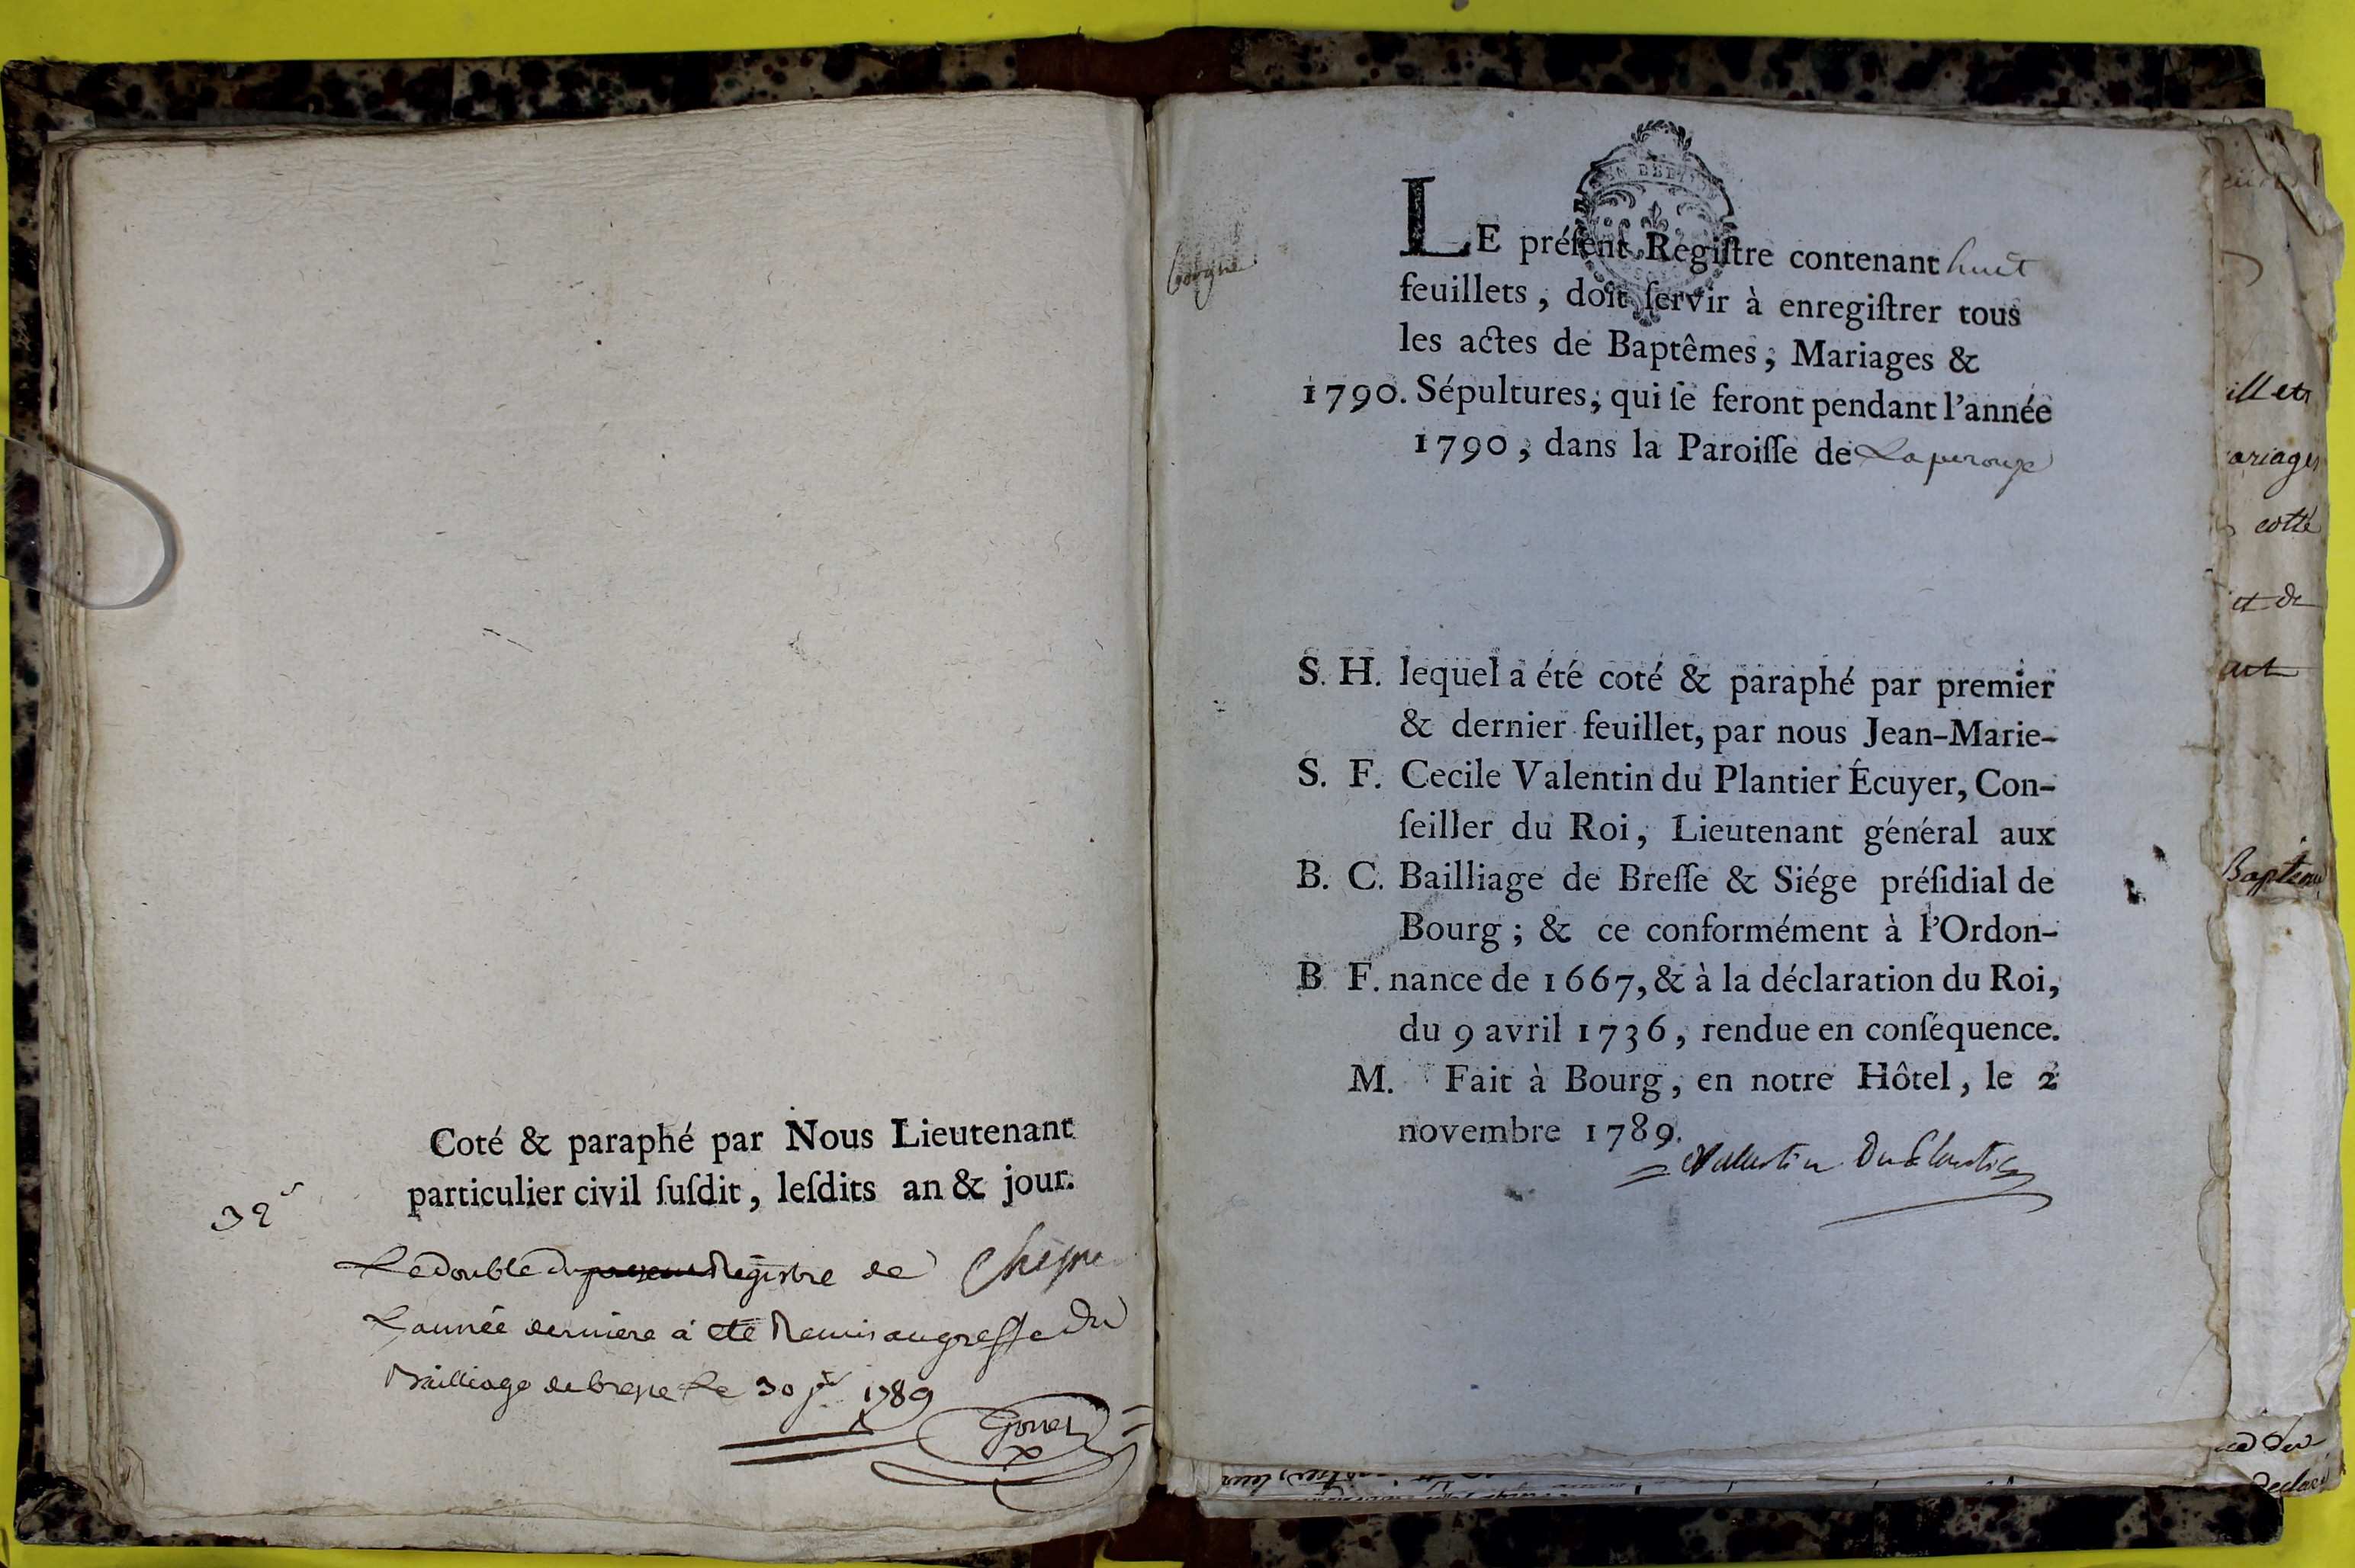 Coté & paraphé par Nous Lieutenant
particulier civil ſuſdit, leſdits an & jour.
Le double du present Registre de
L'année derniere a été Remis au greffe du
Bailliage de bresse Le 30 jer 1789
LE préſent Regiſtre contenant huit
feuillets, doit ſervir à enregiſtrer tous
les actes de Baptêmes, Mariages &
1790. Sépultures, qui ſe feront pendant l'année
1790, dans la Paroiſſe de Laperouze
S. H. lequel a été coté & paraphé par premier
& dernier feuillet, par nous Jean-Marie-
S. F. Cecile Valentin du Plantier Écuyer, Con-
ſeiller du Roi, Lieutenant général aux
B. C. Bailliage de Breſſe & Siége préſidial de
Bourg; & ce conformément à l'Ordon-
B F. nance de 1667, & à la déclaration du Roi,
du 9 avril 1736, rendue en conſéquence.
M. Fait à Bourg, en notre Hôtel, le 2
novembre 1789.
Valentin Duplantier
illets
ariages
cotté
et de
Baptêmes